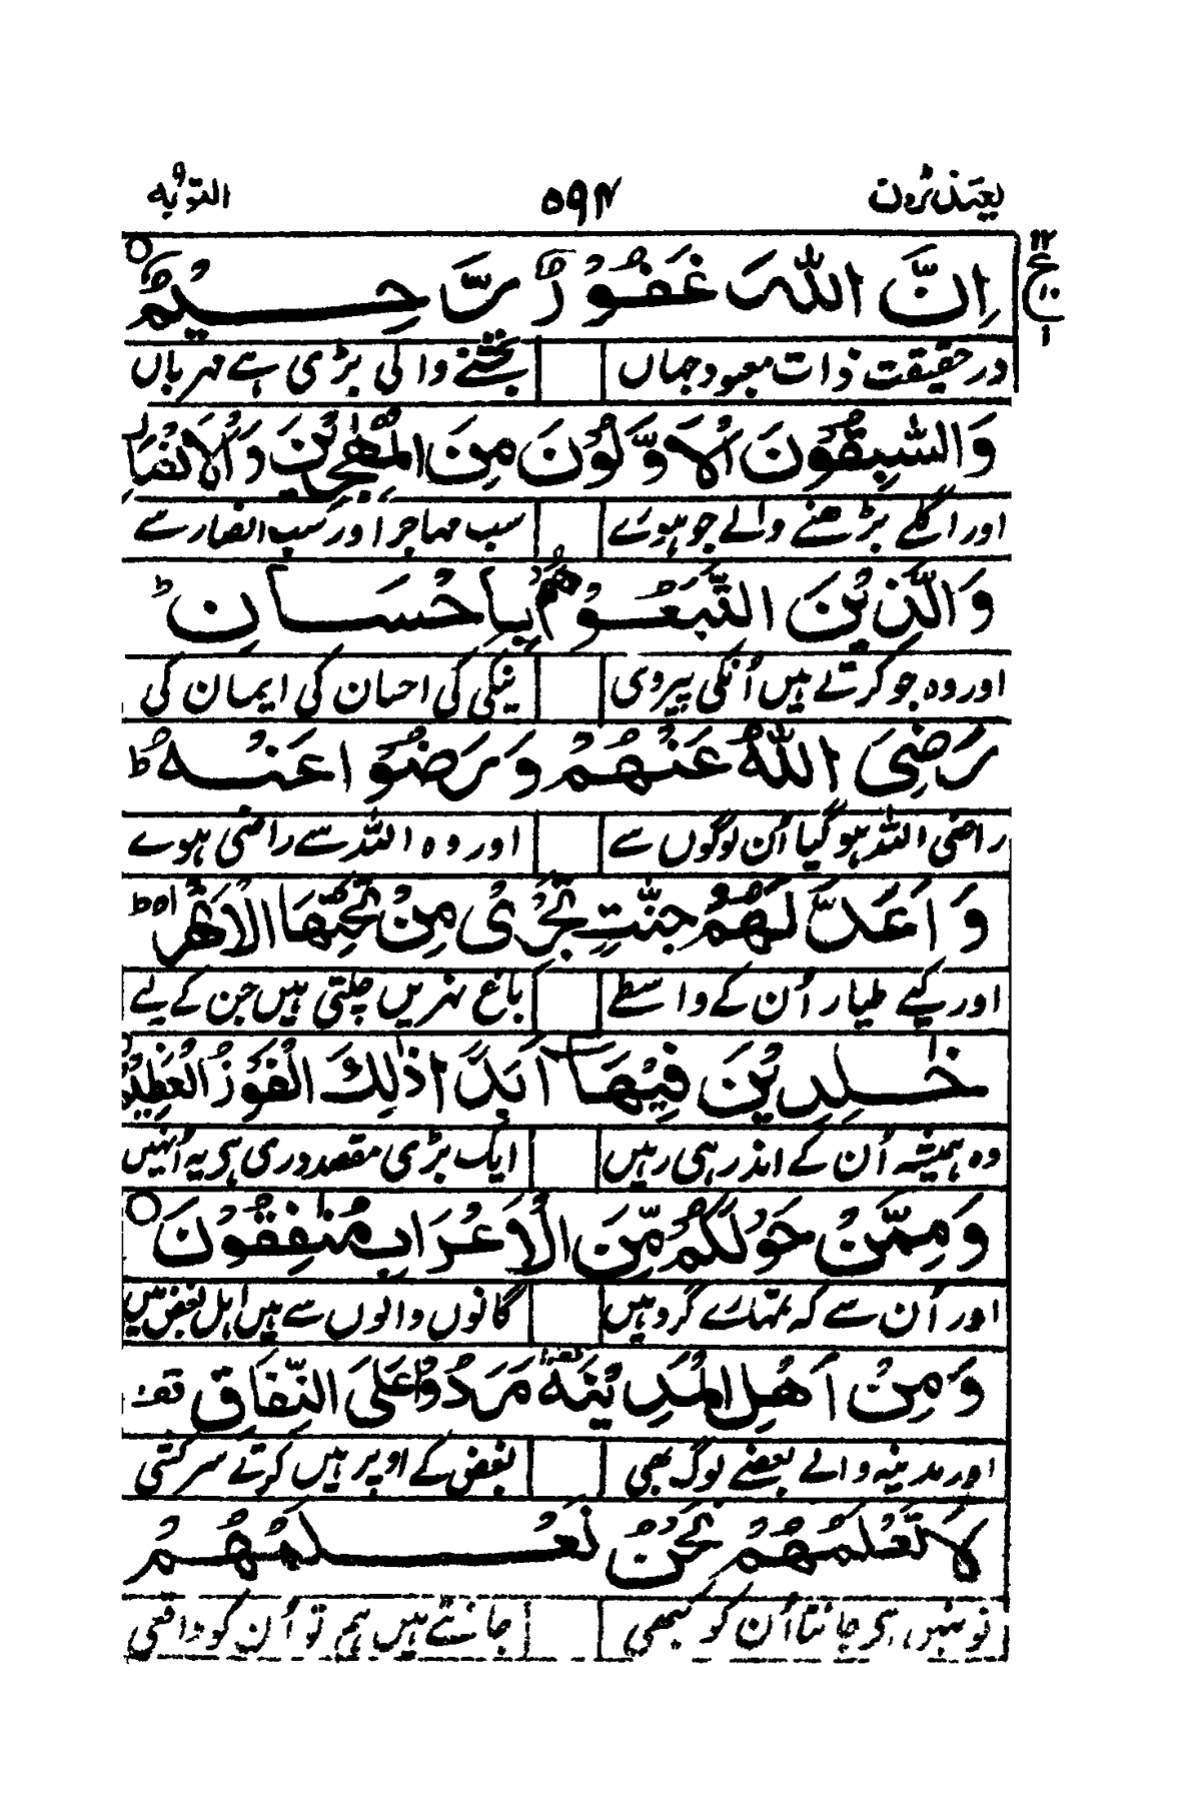 یعتذرون ۵۹۴ التوبه ۹
۱۲ ع ۱۰ ۱
اِنَّ اللّٰهَ غَفُوْرٌ رَّحِـيْمٌ ○
درحقیقت ذات معبود جہاں بخشنے والی بڑی ہے مہرباں
وَالسّٰبِقُوْنَ الْاَوَّلُوْنَ مِنَ الْمُهٰجِرِيْنَ وَالْاَنْصَارِ
اور اگلے بڑھنے والے جو ہوے سب مہاجر اور سب انصار سے
وَالَّذِيْنَ اتَّبَعُوْهُمْ بِاِحْسَانٍ ؕ
اور وہ جو کرتے ہیں اُنکی پیروی نیکی کی احسان کی ایمان کی
رَضِيَ اللّٰهُ عَنْهُمْ وَرَضُوْا عَنْهُ ؕ
راضی اللہ ہو گیا اُن لوگوں سے اور وہ اللہ سے راضی ہوے
وَاَعَدَّ لَهُمْ جَنّٰتٍ تَجْرِيْ مِنْ تَحْتِهَا الْاَنْهٰرُ ؕ
اور کیے طیار اُن کے واسطے باغ نہریں چلتی ہیں جن کے لیے
خٰلِدِيْنَ فِيْهَآ اَبَدًا ذٰلِكَ الْفَوْزُ الْعَظِيْمُ
وہ ہمیشہ اُن کے اندر ہی رہیں ایک بڑی مقصدوری ہی یہ اُنہیں
وَمِمَّنْ حَوْلَكُمْ مِّنَ الْاَعْرَابِ مُنٰفِقُوْنَ ○
اور اُن سے کہ تمہارے گرد ہیں گانوں والوں سے ہیں اہل بعض ہیں
وَمِنْ اَهْلِ الْمَدِيْنَةِ مَرَدُوْا عَلَى النِّفَاقِ قف
اور مدینہ والے بعضے لوگ بھی بغض کے اوپر ہیں کرتے سرکشی
لَا تَعْلَمُهُمْ نَحْنُ نَعْـلَمُهُمْ
تو نہیں ہی جانتا اُن کو کبھی جانتے ہیں ہم تو اُن کو واقعی